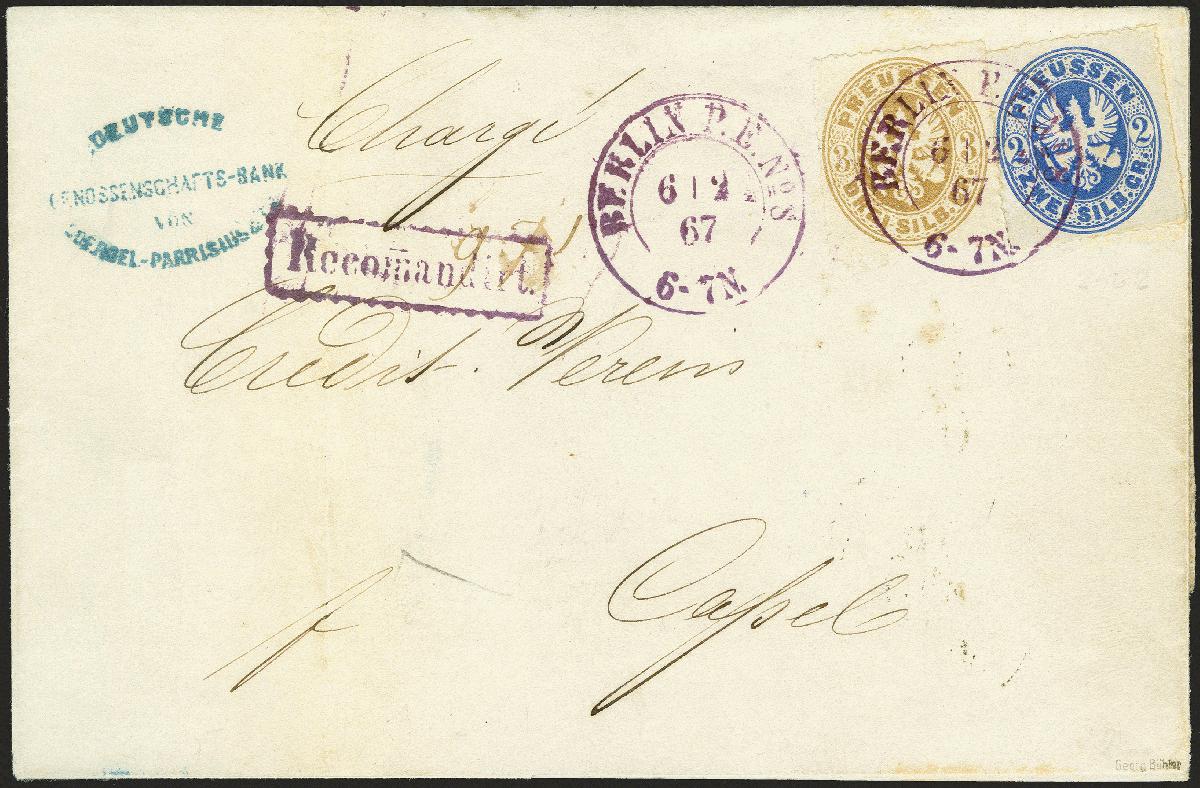 Chargé
DEUTSCHE
GENOSSENSCHAFTS-BANK
VON
SOERGEL-PARRISIUS
Recom̄andirt.
BERLIN P. E. No 8
6 12
67
6-7N.
PREUSSEN
3 3
DREI SILB. GR.
BERLIN P. E. No 8
6 12
67
6-7N.
PREUSSEN
2 2
ZWEI SILB. GR.
Credit-Verein
Cassel
Georg Bühler